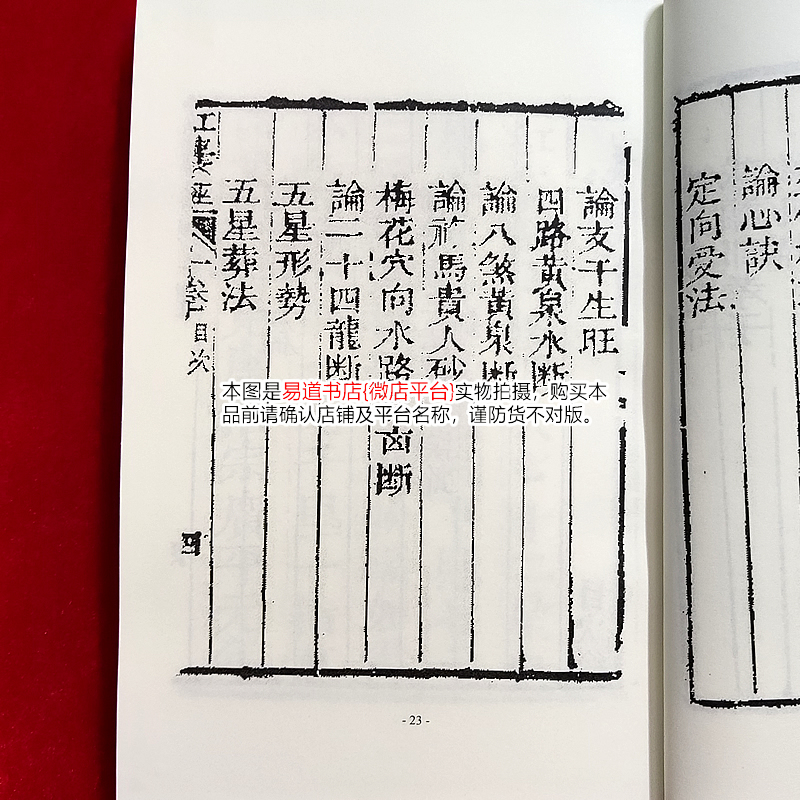 論支干生旺
四路黃泉水斷
論八煞黃泉斷
論祿馬貴人砂
梅花穴向水路 凶斷
論二十四龍斷
五星形勢
五星葬法
卷 目次
四
本图是易道书店{微店平台}实物拍摄，购买本
品前请确认店铺及平台名称，谨防货不对版。
- 23 -
論心訣
定向受法